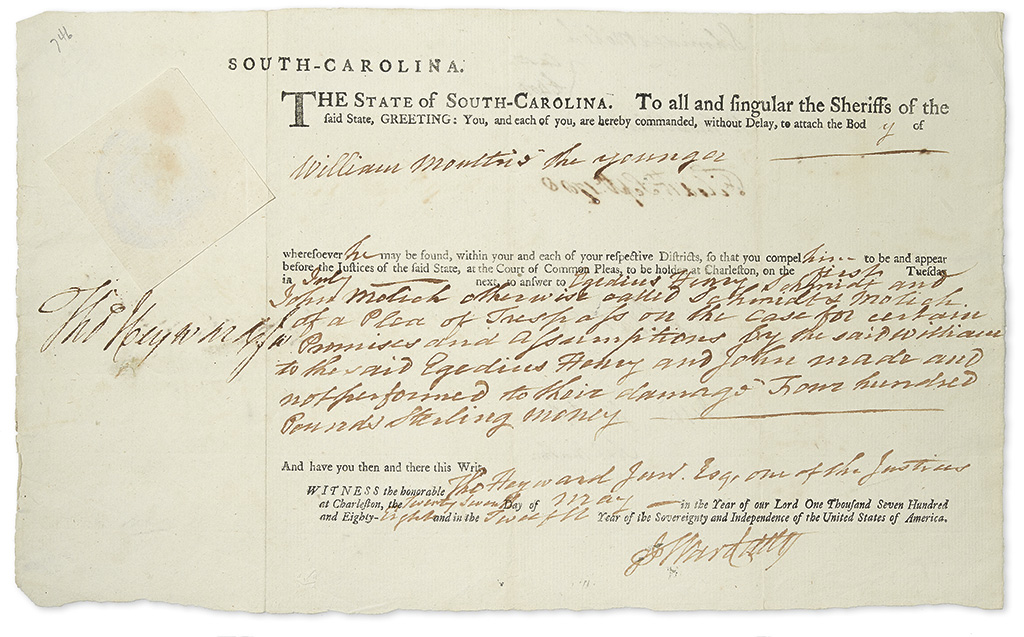 746
SOUTH-CAROLINA.
THE STATE of SOUTH-CAROLINA. To all and singular the Sheriffs of the
said State, GREETING: You, and each of you, are hereby commanded, without Delay, to attach the Bod y of
William Moultrie the younger
wheresoever he may be found, within your and each of your respective Districts, so that you compel him to be and appear
before the Justices of the said State, at the Court of Common Pleas, to be holden at Charleston, on the first Tuesday
in July next, to answer to Egedius Henry Schmidt and
John Motich otherwise called Schmidt & Motich
of a Plea of Trespass on the case for certain
Promises and Assumptions by the said William
to the said Egedius Henry and John made and
not performed to their damage Four hundred
Pounds Sterling Money
Tho Heyward Junr
And have you then and there this Writ.
WITNESS the honorable Tho Heyward Junr. Esqr, one of the Justices
at Charleston, the Twenty Seven Day of May in the Year of our Lord One Thousand Seven Hundred
and Eighty-Eight and in the Twelfth Year of the Sovereignty and Independence of the United States of America.
Ward Atty